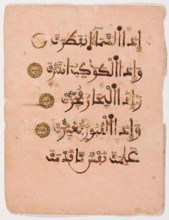 إذا السماء انفطرت
وإذا الكواكب انتثرت
وإذا البحار فجرت
وإذا القبور بعثرت
علمت نفس ما قدمت